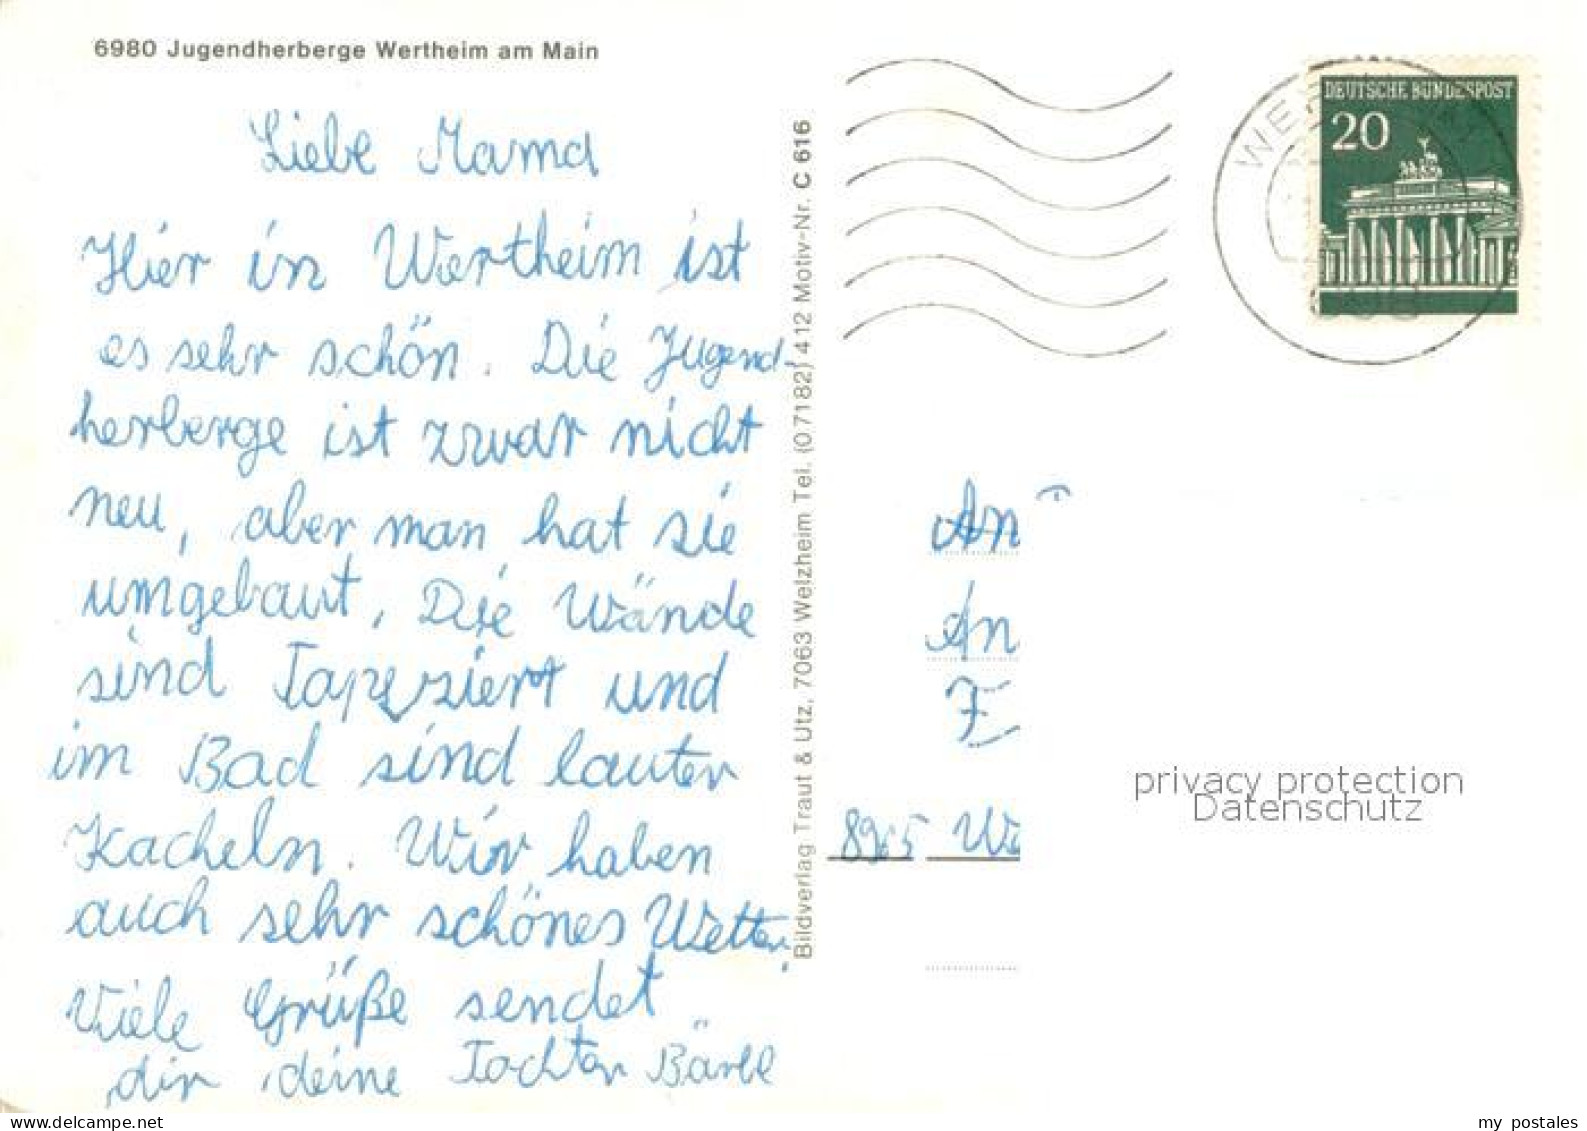 6980 Jugendherberge Wertheim am Main
Liebe Mama
Hier in Wertheim ist
es sehr schön. Die Jugend-
herberge ist zwar nicht
neu, aber man hat sie
umgebaut. Die Wände
sind Tapeziert und
im Bad sind lauter
Kacheln. Wir haben
auch sehr schönes Wetter.
Viele Grüße sendet
dir deine Tochter Bärbl
Bildverlag Traut & Utz, 7063 Welzheim Tel. (07182) 412 Motiv-Nr. C 616
DEUTSCHE BUNDESPOST
20
An
An
8965 We
privacy protection
Datenschutz
my postales